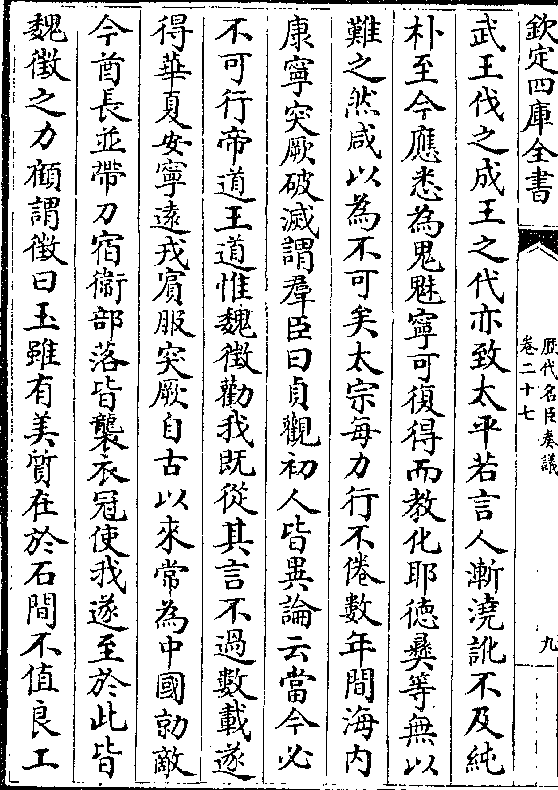 欽定四庫全書
歷代名臣奏議
卷二十七
九
武王伐之成王之代亦致太平若言人漸澆訛不及純
朴至今應悉為鬼魅寧可復得而教化耶德彝等無以
難之然咸以為不可矣太宗每力行不倦數年間海內
康寧突厥破滅謂羣臣曰貞觀初人皆異論云當今必
不可行帝道王道惟魏徵勸我既從其言不過數載遂
得華夏安寧遠戎賓服突厥自古以來常為中國勍敵
今酋長並帶刀宿衛部落皆襲衣冠使我遂至於此皆
魏徵之力顧謂徵曰玉雖有美質在於石間不值良工